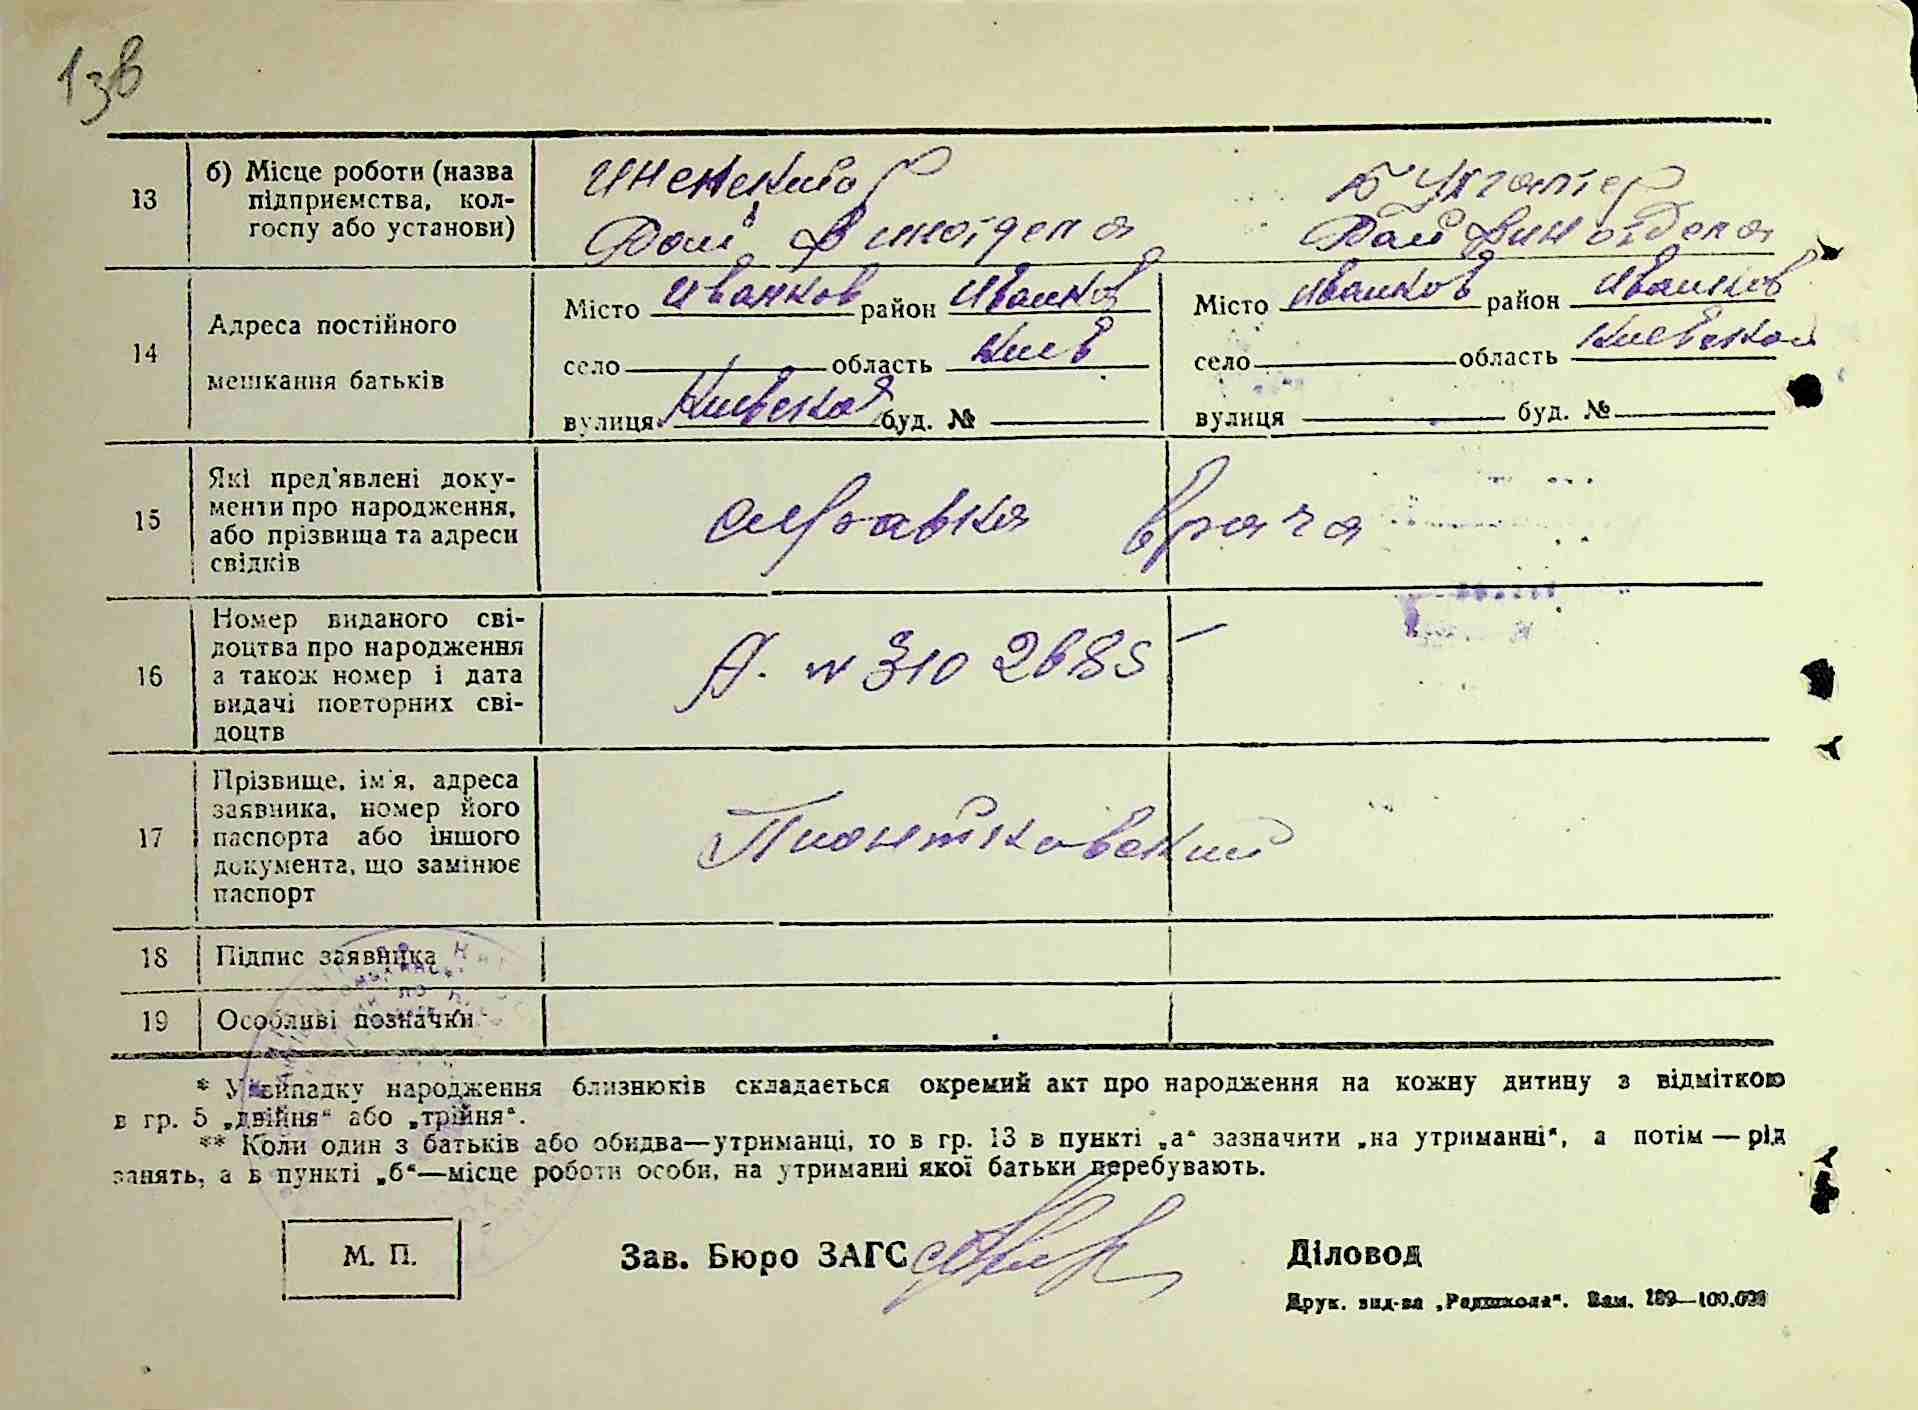 13в
13
б) Місце роботи (назва
підприємства, кол-
госпу або установи)
Бухгалтер
14
Адреса постійного
мешкання батьків
Місто Иванков район Иванков
село область Киев
вулиця Киевская буд. №
Місто Иванков район Иванков
село область Киевская
вулиця буд. №
15
Які пред'явлені доку-
менти про народження,
або прізвища та адреси
свідків
справка врача
16
Номер виданого сві-
доцтва про народження
а також номер і дата
видачі повторних сві-
доцтв
А. № 3102685
17
Прізвище, ім'я, адреса
заявника, номер його
паспорта або іншого
документа, що замінює
паспорт
Пионтковский
18
Підпис заявника
19
Особливі позначки
* У випадку народження близнюків складається окремий акт про народження на кожну дитину з відміткою
в гр. 5 „двійня“ або „трійня“.
** Коли один з батьків або обидва—утриманці, то в гр. 13 в пункті „а“ зазначити „на утриманні“, а потім — рід
занять, а в пункті „б“—місце роботи особи, на утриманні якої батьки перебувають.
М. П.
Зав. Бюро ЗАГС
Діловод
Друк. вид-ва „Радшкола“. Зам. 189—100.000